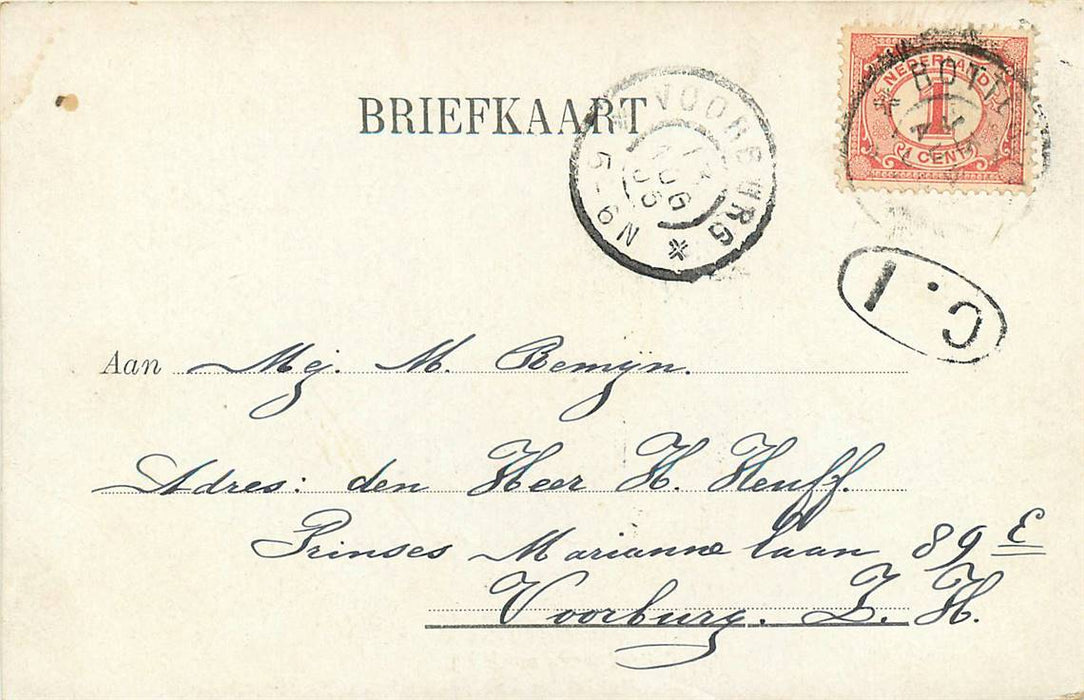 BRIEFKAART
VOORBURG
AUG 06
5-6 N
NEDERLAND
1
1 CENT
C. 1
Aan Mej. M. Remijn.
Adres: den Heer H. Heuff.
Prinses Marianne laan 89 E
Voorburg. Z. H.